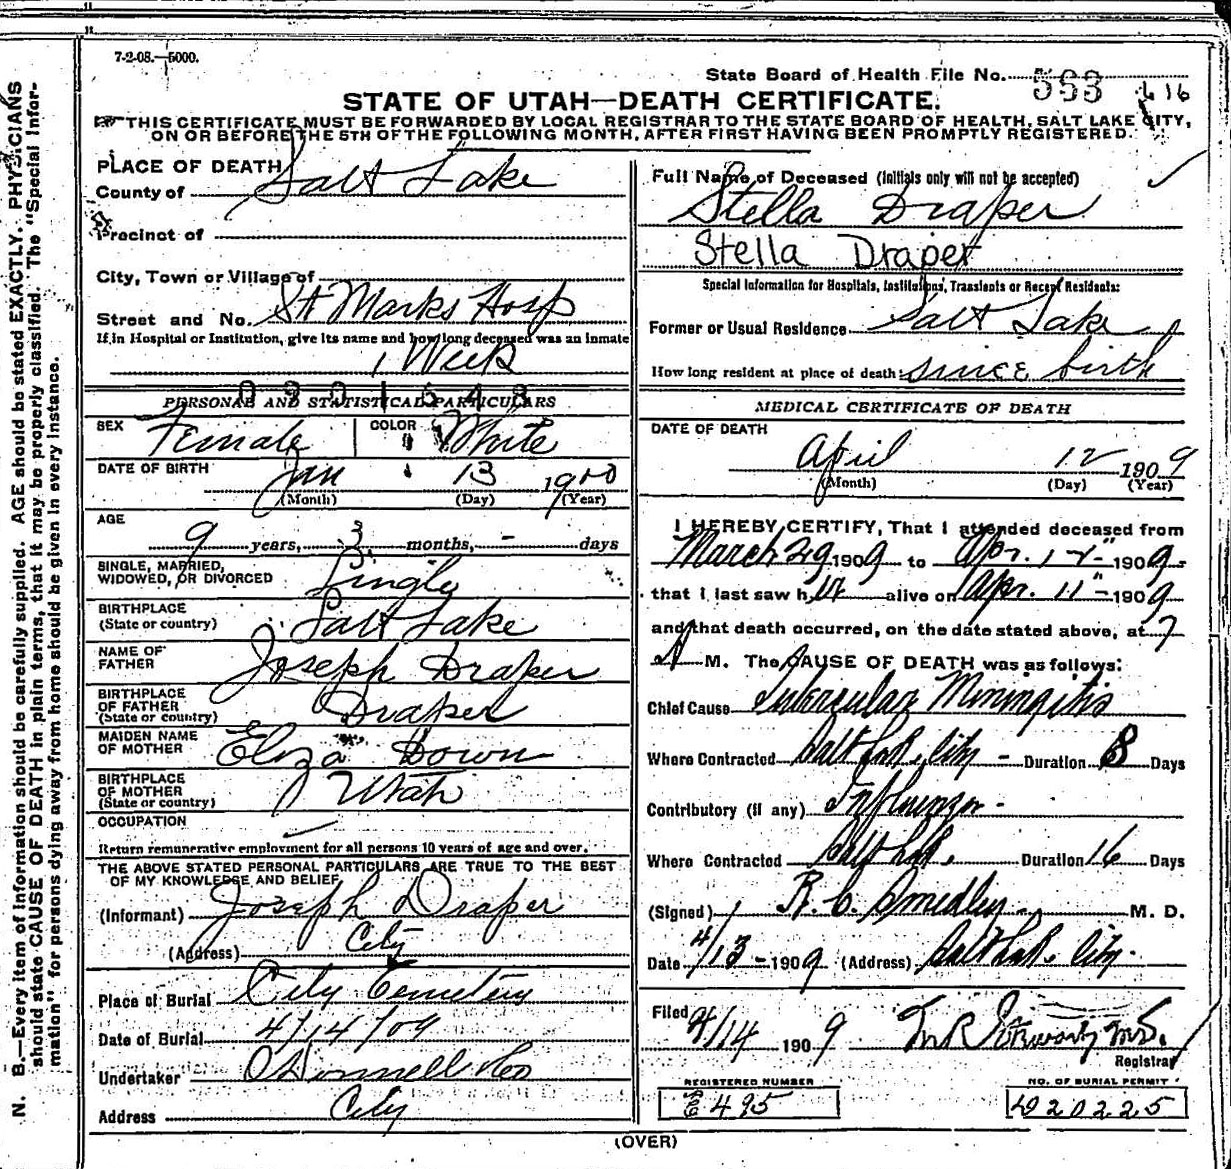 7-2-08.—5000.
State Board of Health File No. 563 616
STATE OF UTAH—DEATH CERTIFICATE.
THIS CERTIFICATE MUST BE FORWARDED BY LOCAL REGISTRAR TO THE STATE BOARD OF HEALTH, SALT LAKE CITY,
ON OR BEFORE THE 5TH OF THE FOLLOWING MONTH, AFTER FIRST HAVING BEEN PROMPTLY REGISTERED.
PLACE OF DEATH
County of Salt Lake
Precinct of
City, Town or Village of
Street and No. St Marks Hosp
If in Hospital or Institution, give its name and how long deceased was an inmate
1 Week
0301548
PERSONAL AND STATISTICAL PARTICULARS
SEX Female COLOR White
DATE OF BIRTH Jan 13 1900
(Month) (Day) (Year)
AGE
9 years, 3 months, - days
SINGLE, MARRIED,
WIDOWED, OR DIVORCED Single
BIRTHPLACE
(State or country) Salt Lake
NAME OF
FATHER Joseph Draper
BIRTHPLACE
OF FATHER
(State or country) Draper
MAIDEN NAME
OF MOTHER Eliza Down
BIRTHPLACE
OF MOTHER
(State or country) Utah
OCCUPATION
Return remunerative employment for all persons 10 years of age and over.
THE ABOVE STATED PERSONAL PARTICULARS ARE TRUE TO THE BEST
OF MY KNOWLEDGE AND BELIEF
(Informant) Joseph Draper
(Address) City
Place of Burial City Cemetery
Date of Burial 4/14/09
Undertaker O'Donnell & Co
Address City
Full Name of Deceased (Initials only will not be accepted)
Stella Draper
Stella Draper
Special Information for Hospitals, Institutions, Transients or Recent Residents:
Former or Usual Residence Salt Lake
How long resident at place of death since birth
MEDICAL CERTIFICATE OF DEATH
DATE OF DEATH
April 12 1909
(Month) (Day) (Year)
I HEREBY CERTIFY, That I attended deceased from
March 29 1909 to Apr. 12" 1909
that I last saw her alive on Apr. 11" 1909
and that death occurred, on the date stated above, at 7
A M. The CAUSE OF DEATH was as follows:
Chief Cause Tubercular Miningitis
Where Contracted Salt Lake City - Duration 8 Days
Contributory (if any) Influenza -
Where Contracted Salt Lak. Duration 16 Days
(Signed) R. C. Smedley M. D.
Date 4/13 - 1909 (Address) Salt Lak. City.
Filed 4/14 1909
Registrar
REGISTERED NUMBER
E 495
NO. OF BURIAL PERMIT
D 20225
(OVER)
N. B.—Every item of information should be carefully supplied. AGE should be stated EXACTLY. PHYSICIANS
should state CAUSE OF DEATH in plain terms, that it may be properly classified. The "Special Infor-
mation" for persons dying away from home should be given in every instance.